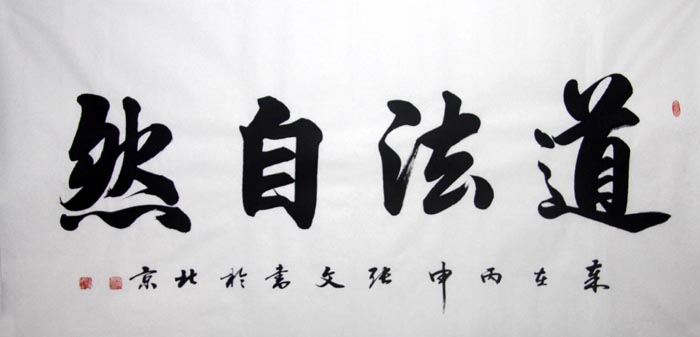 道法自然
岁在丙申张文书於北京